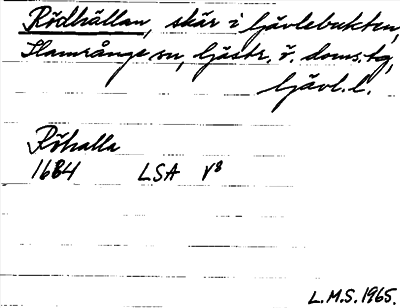 Rödhällan, skär i Gävlebukten,
Hamrånge sn, Gästr. ö. doms.tg,
Gävl.l.
Röhalla
1684 LSA V⁸
L.M.S. 1965.